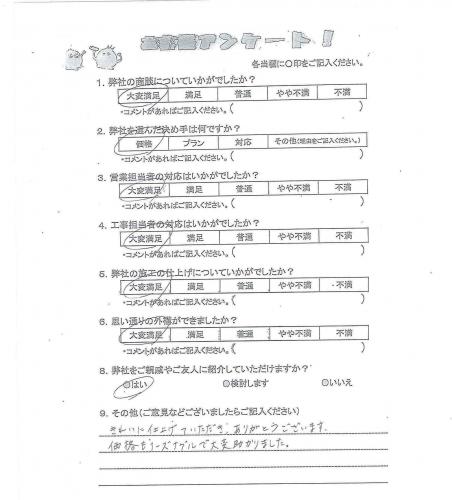 お客様アンケート！
各当欄に○印をご記入ください。
1. 弊社の商談についていかがでしたか？
大変満足 満足 普通 やや不満 不満
・コメントがあればご記入ください。( )
2. 弊社を選んだ決め手は何ですか？
価格 プラン 対応 その他(理由をご記入ください。)
・コメントがあればご記入ください。( )
3. 営業担当者の対応はいかがでしたか？
大変満足 満足 普通 やや不満 不満
・コメントがあればご記入ください。( )
4. 工事担当者の対応はいかがでしたか？
大変満足 満足 普通 やや不満 不満
・コメントがあればご記入ください。( )
5. 弊社の施工の仕上げについていかがでしたか？
大変満足 満足 普通 やや不満 不満
・コメントがあればご記入ください。( )
6. 思い通りの外構ができましたか？
大変満足 満足 普通 やや不満 不満
・コメントがあればご記入ください。( )
8. 弊社をご親戚やご友人に紹介していただけますか？
◎はい ◎検討します ◎いいえ
9. その他(ご意見などございましたらご記入ください)
きれいに仕上げていただき、ありがとうございます。
価格もリーズナブルで大変助かりました。